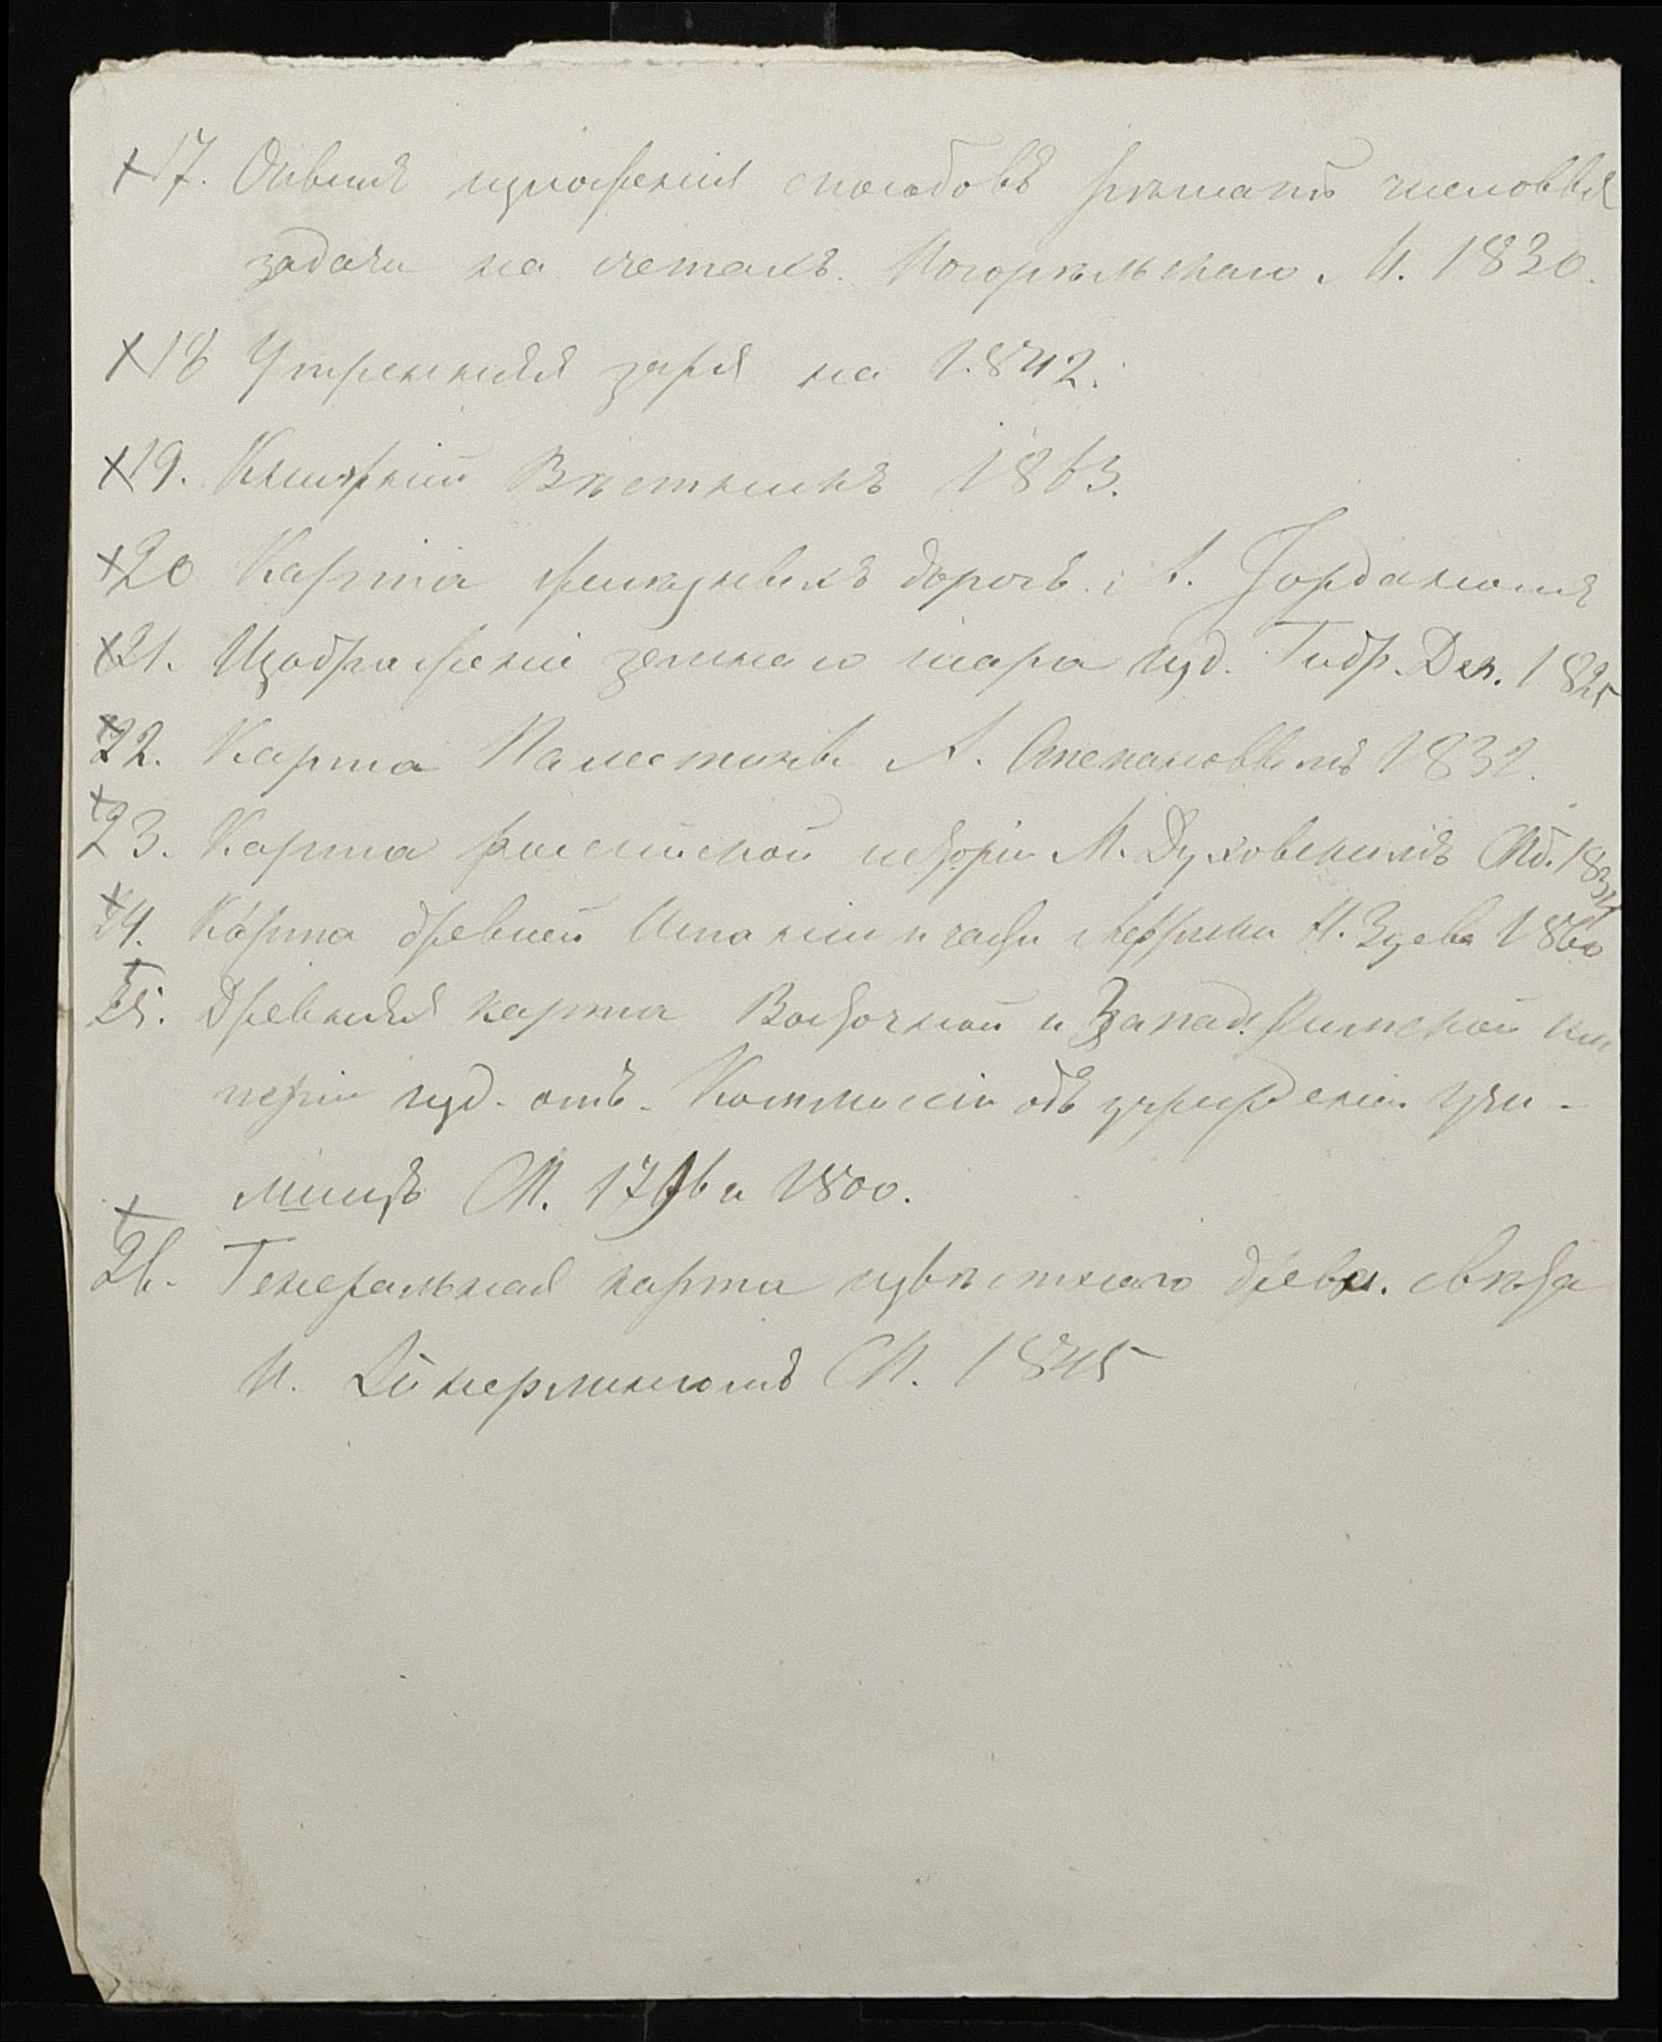 +17. Опытъ изложенія способовъ рѣшать числовыя
задачи на счетахъ. Погорѣльскаго М. 1830.
+18 Утренняя заря на 1842.
+19. Книжный Вѣстникъ 1863.
+20 Карта желѣзныхъ дорогъ А. Іорданомъ
+21. Изображеніе земнаго шара изд. Гидр. Деп. 1825
+22. Карта Палестины А. Степановымъ 1832.
+23. Карта россійской исторіи М. Духовскимъ СПб. 1834
+24. Карта древней Испаніи и части Африки Н. Зуева 1860
+25. Древняя карта Восточной и Запад. Римской им
перiи изд. отъ Коммисіи объ учрежденіи учи-
лищъ СП. 1796 и 1800.
+26. Генеральная карта извѣстнаго древн. свѣта
СП. 1845